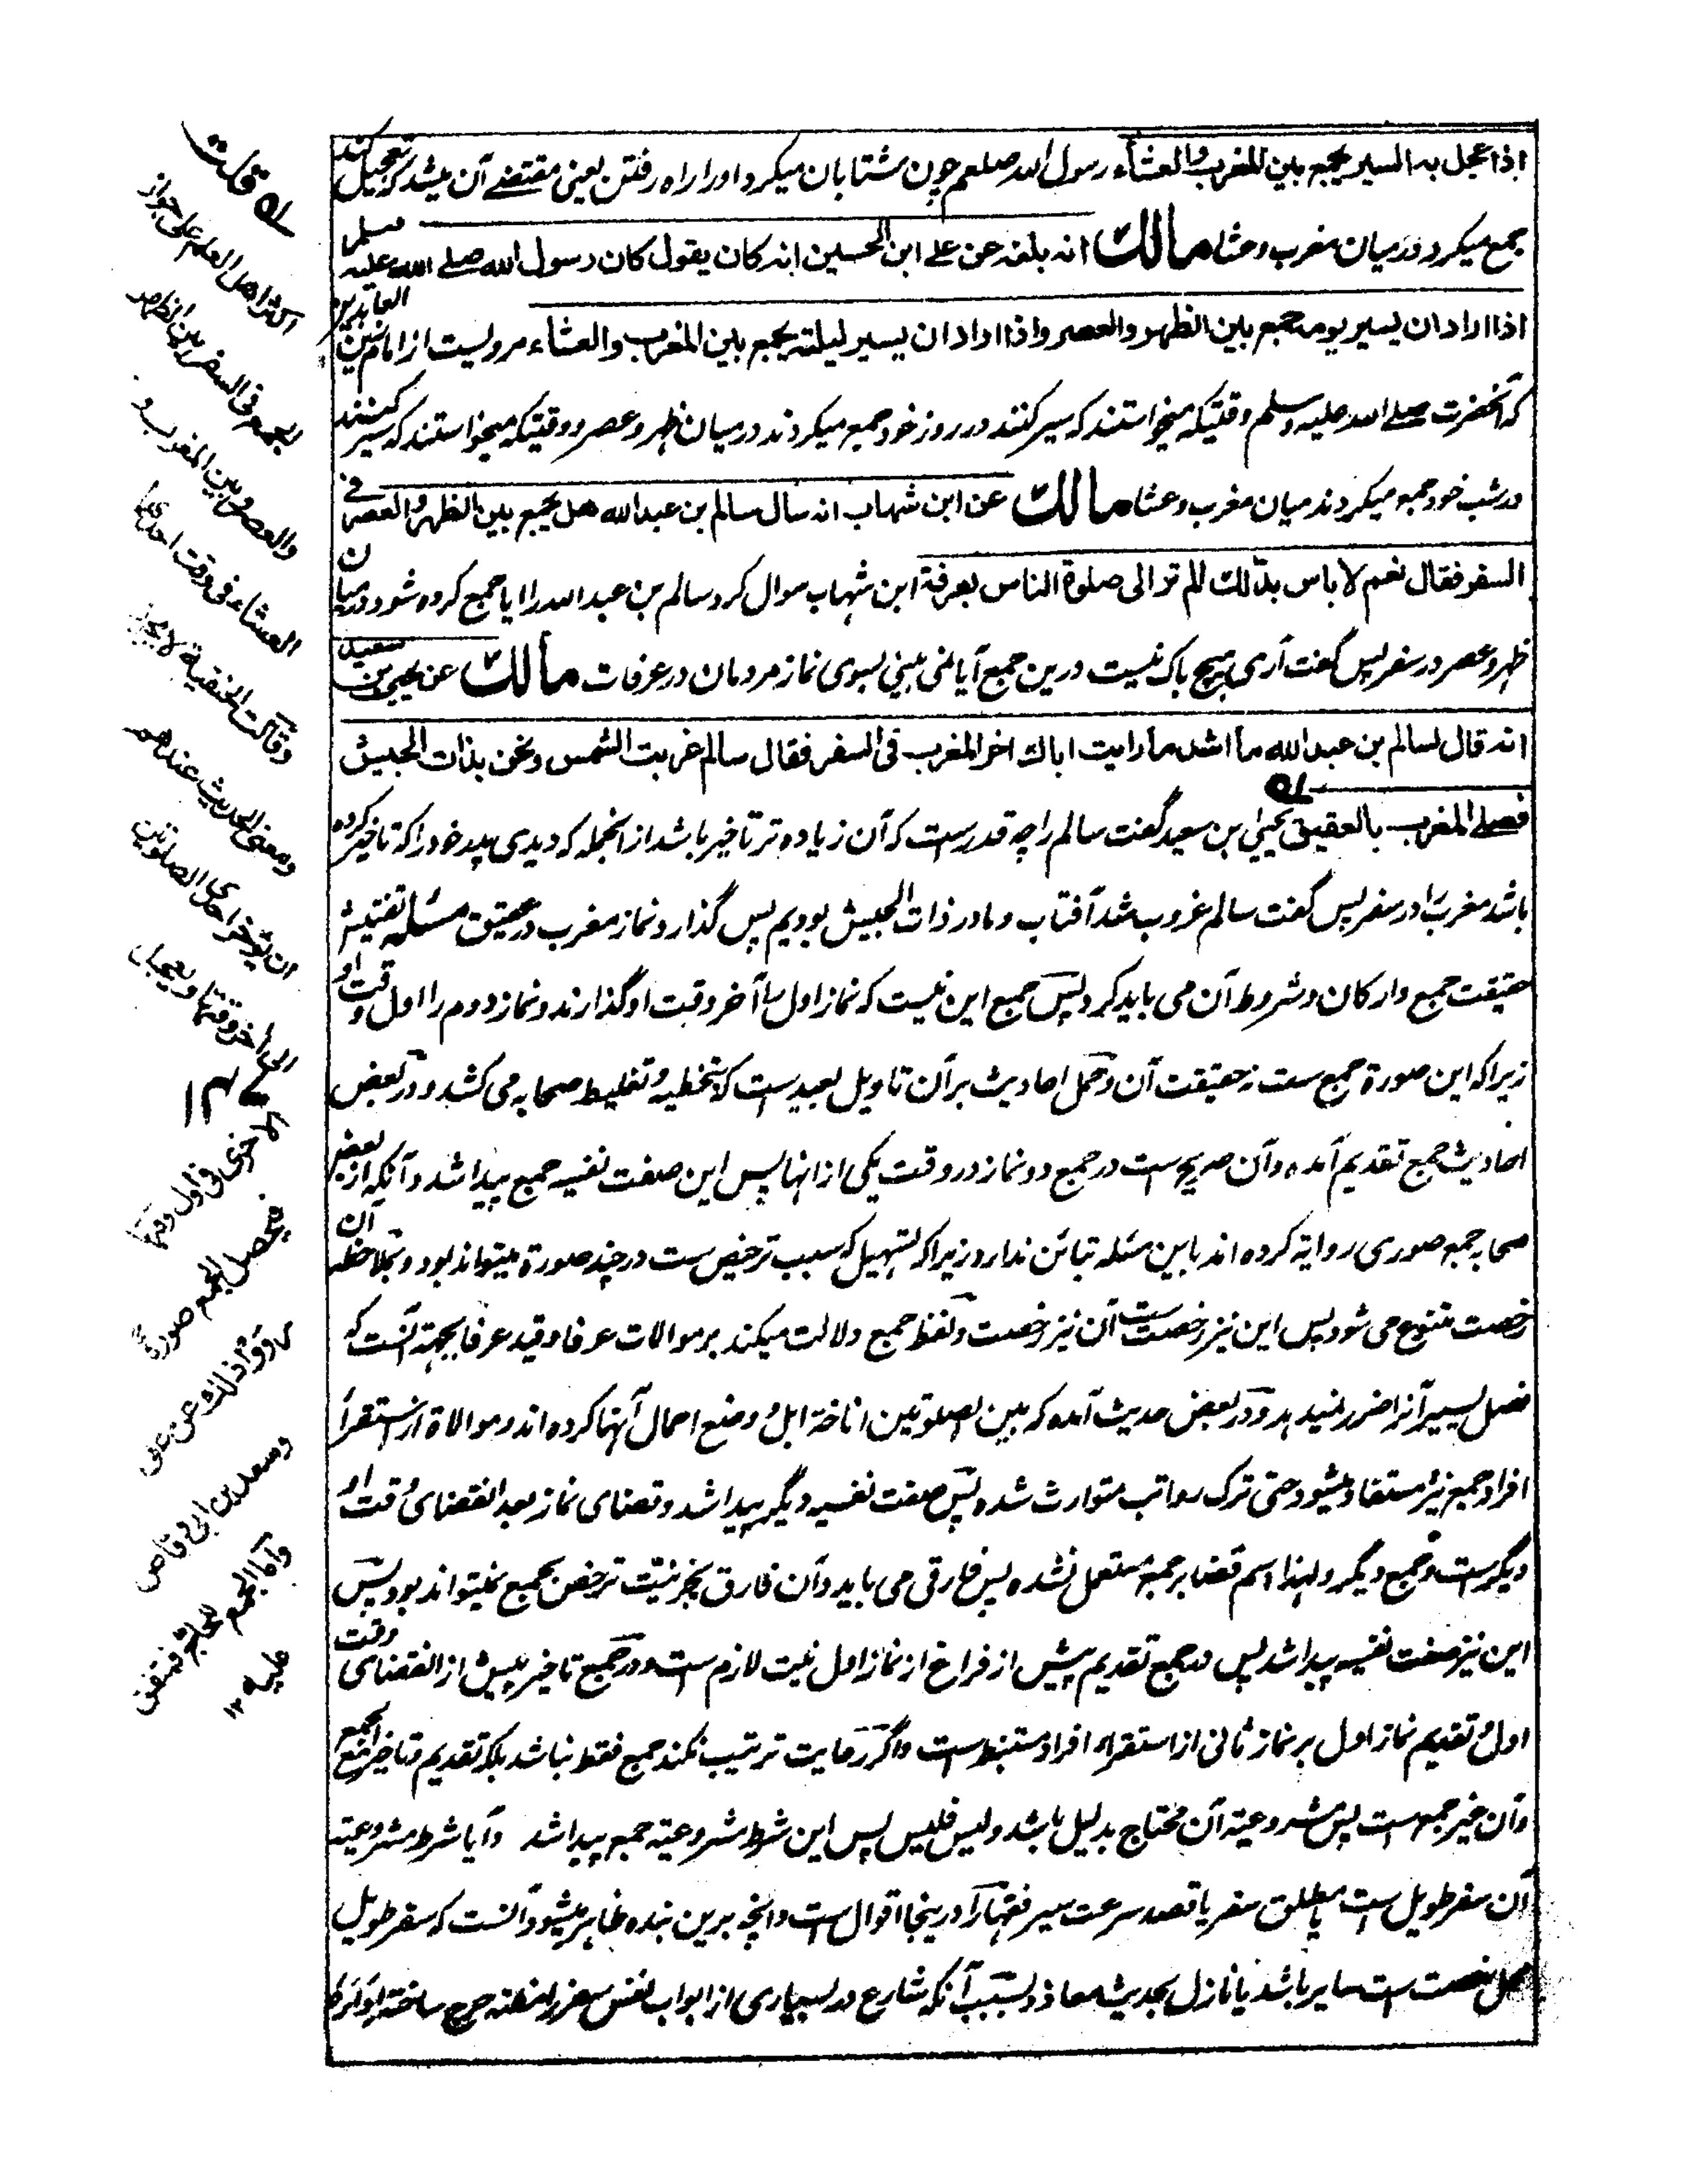 اذا عجل به السیر یجمع بین المغرب والعشاء رسول الله صلعم چون شتابان میکرد اورا راه رفتن یعنی مقتضے آن میشد که تعجیل کند
جمع میکرد درمیان مغرب وعشا مالك انه بلغه عن علے ابن الحسین انه کان یقول کان رسول الله صلے الله علیه وسلم
اذا اراد ان یسیر یومه جمع بین الظهر والعصر واذا اراد ان یسیر لیلته یجمع بین المغرب والعشاء مرویست از امام زین العابدین
که آنحضرت صلے الله علیه وسلم وقتیکه میخواستند که سیر کنند در روز خود جمع میکردند درمیان ظهر وعصر ووقتیکه میخواستند که سیر کنند
در شب خود جمع میکردند میان مغرب وعشا مالك عن ابن شهاب انه سأل سالم بن عبدالله هل یجمع بین الظهر والعصر فے
السفر فقال نعم لا باس بذلك الم تر الی صلوة الناس بعرفة ابن شهاب سوال کرد سالم بن عبدالله را ایا جمع کرده شود درمیان
ظهر وعصر در سفر پس گفت آری هیچ باک نیست درین جمع آیا نمی بینی بسوی نماز مردمان در عرفات مالك عن یحیی بن سعید
انه قال لسالم بن عبدالله ما اشد ما رایت اباك اخر المغرب فی السفر فقال سالم غربت الشمس ونحن بذات الجیش
فصلے المغرب بالعقیق یحیی ابن سعید گفت سالم را چه قدرست که آن زیاده تر تاخیر باشد از انجمله که دیدی پدر خود را که تاخیر کرده
باشد مغرب را در سفر پس گفت سالم غروب شد آفتاب وما در ذات الجیش بودیم پس گذارد نماز مغرب در عقیق مسئله تفتیش
حقیقت جمع وارکان وشروط آن می باید کرد پس جمع این نیست که نماز اول را آخر وقت او گذارند ونماز دوم را اول وقت او
زیرا که این صورة جمع ست نه حقیقت آن وحمل احادیث بر آن تاویل بعیدست که بتخطیه وتغلیط صحابه می کشد ودر بعض
احادیث جمع تقدیم آمده وآن صریح ست در جمع دو نماز در وقت یکی از انها پس این صفت نفسیه جمع پیدا شد وآنکه از بعض
صحابه جمع صوری روایة کرده اند باین مسئله تبائن ندارد زیرا که تسهیل که سبب ترخیص ست در چند صورة میتواند بود وبملاحظه آن
رخصت متنوع می شود پس این نیز رخصت ست آن نیز رخصت ولفظ جمع دلالت میکند بر موالات عرفا وقید عرفا بجهة آنست که
فصل یسیر آنرا ضرر نمیدهد ودر بعض حدیث آمده که بین الصلوتین اناخة ابل و وضع احمال آنها کرده اند وموالاة از استقراء
افراد جمع نیز مستفاد میشود حتی ترک رواتب متوارث شده پس صفت نفسیه دیگر پیدا شد وقضای نماز بعد انقضای وقت او
دیگرست وجمع دیگر ولهذا اسم قضا بر جمع مستعمل نشده پس فارقی می باید وآن فارق بجز نیت ترخص بجمع نمیتواند بود پس
این نیز صفت نفسیه پیدا شد پس در جمع تقدیم پیش از فراغ از نماز اول نیت لازم ست ودر جمع تاخیر پیش از انقضای وقت
اول وتقدیم نماز اول بر نماز ثانی از استقراء افراد مستنبط ست واگر رعایت ترتیب نکند جمع فقط نباشد بلکه تقدیم وتاخیر مع الجمع
وآن غیر جمع ست پس مشروعیة آن محتاج بدلیل باشد ولیس فلیس پس این شرط مشروعیة جمع پیدا شد وآیا شرط مشروعیة
آن سفر طویل ست یا مطلق سفر یا قصد سرعت سیر فقها را درینجا اقوال ست وانچه برین بنده ظاهر میشود آنست که سفر طویل
محل رخصت ست سایر باشد یا نازل بحدیث معاذ وبسبب آنکه شارع در بسیاری از ابواب نفس سفر را مظنه حرج ساخته
له قلت
اکثر اهل العلم علی جواز
الجمع فی السفر بین الظهر
والعصر وبین المغرب و
العشاء فی وقت احدهما
وقالت الحنفیة لا یجوز
ومعنی الحدیث عندهم
ان یؤخر احدی الصلوتین
الی آخر وقتها ویعجل
الاخری فی اول وقتها
فیحصل الجمع صورة
رووا ذلك عن علی
وسعد بن ابی وقاص
واما الجمع للحاج فمتفق
علیه ۱۲